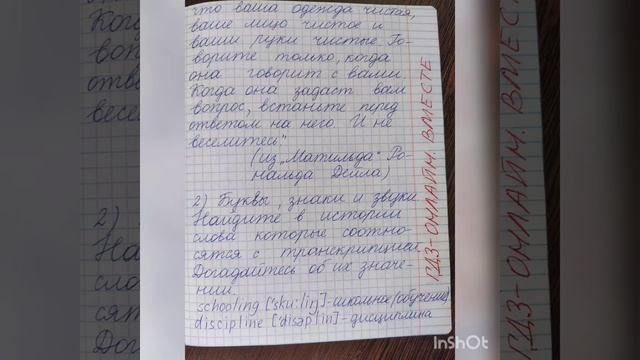 что ваша одежда чистая,
ваше лицо чистое и
ваши руки чистые. Го-
ворите только, когда
она говорит с вами.
Когда она задаст вам
вопрос, встаните перед
ответом на него. И не
веселитесь"
(из „Матильда" Ро-
нальда Делла)
2) Буквы, знаки и звуки
Найдите в истории
слова которые соотно-
сятся с транскрипцией.
Догадайтесь об их значе-
нии.
schooling ['sku:liŋ]-школьное(обучение)
discipline ['disəplin]-дисциплина
ГДЗ-ОНЛАЙН. ВМЕСТЕ
InShOt